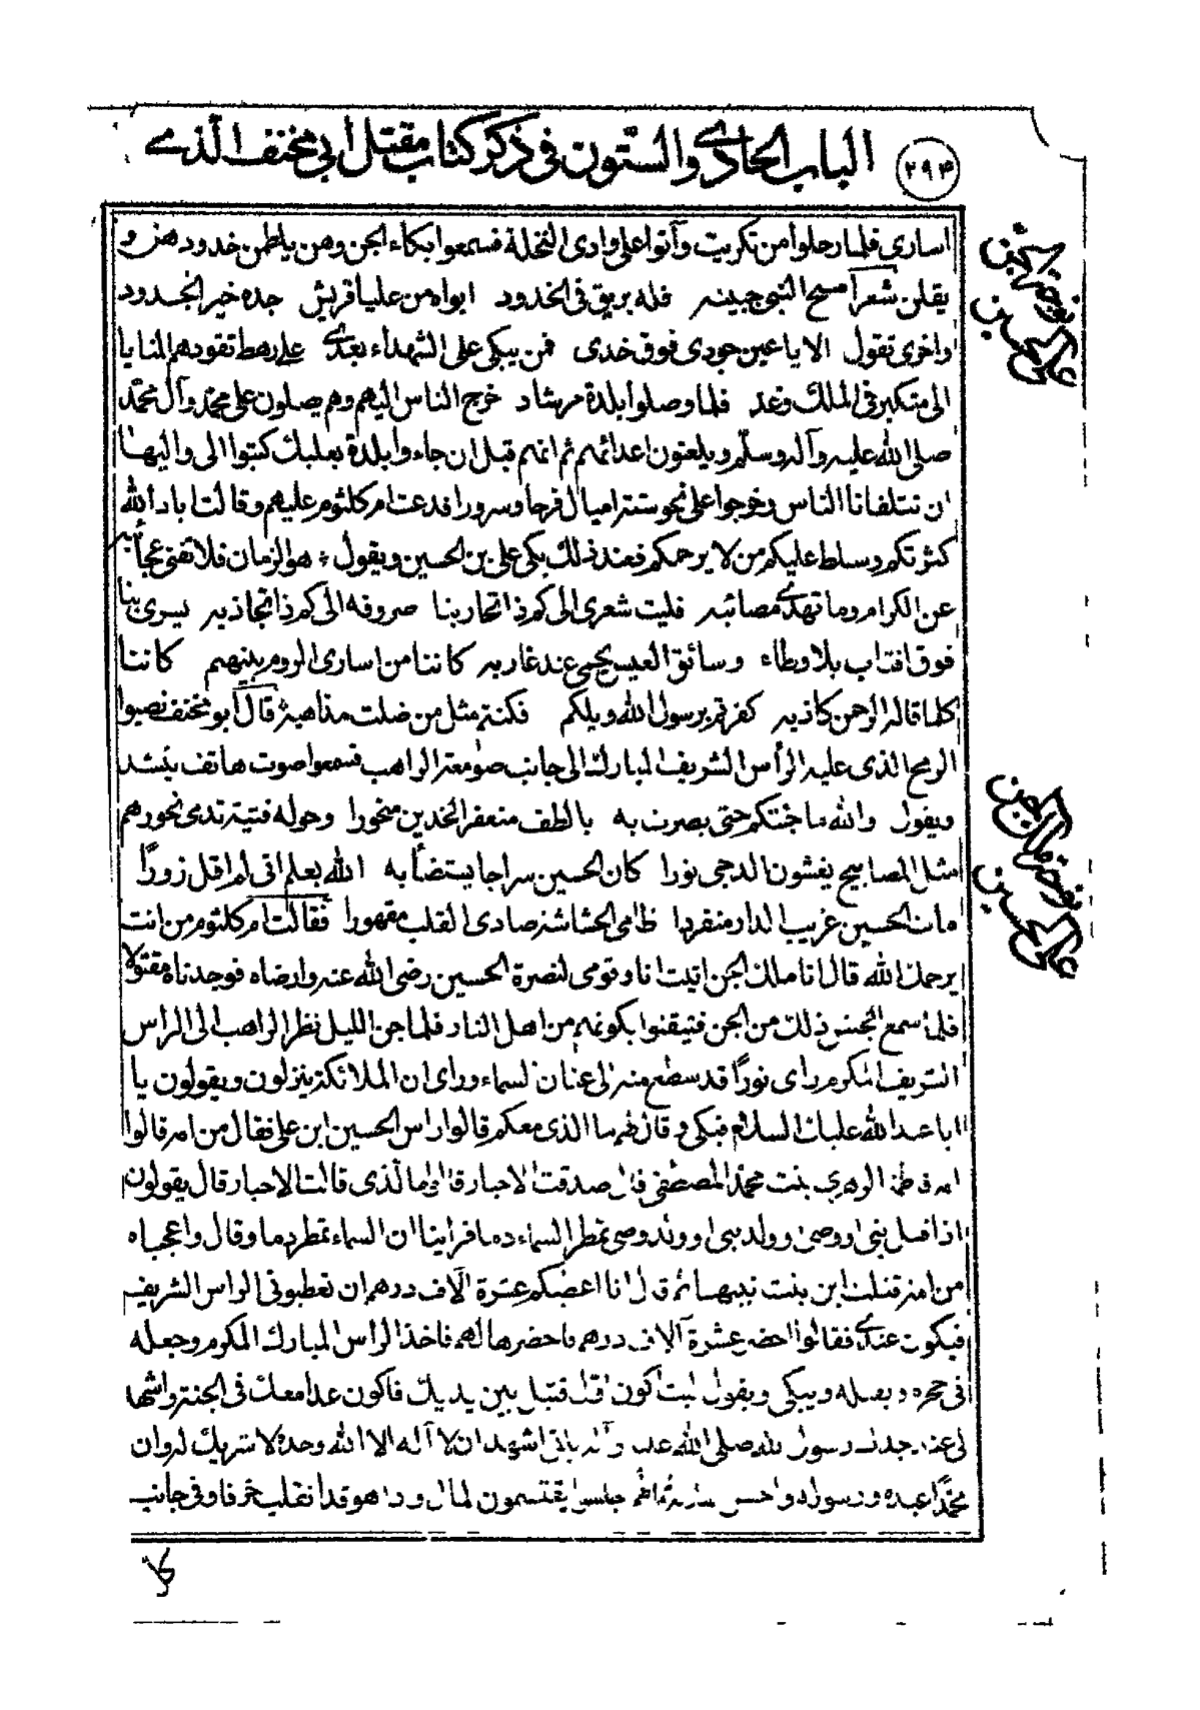 ٢٩٤
الباب الحادي والستون في ذكر كتاب مقتل أبي مخنف الذي
اسارى فلما رحلوا من تكريت وأتوا على وادى النخلة فسمعوا بكاء الجن وهن يلطمن خدودهن و
يقلن شعراً مسح النبى جبينه فله بريق في الخدود ابواه من عليا قريش جده خير الجدود
واخرى تقول الا يا عين جودى فوق خدى فمن يبكى على الشهداء بعدى على رهط تقودهم المنايا
الى متكبر في الملك وغد فلما وصلوا بلدة مرشاد خرج الناس اليهم وهم يصلون على محمد وآل محمد
صلى الله عليه وآله وسلم ويلعنون اعدائهم ثم انهم قبل ان جاءوا بلدة بعلبك كتبوا الى واليها
ان نتلقانا الناس وخرجوا على نحو ستة اميال فرحا وسرورا فدعت ام كلثوم عليهم وقالت اباد الله
كثرتكم وسلط عليكم من لا يرحمكم فعند ذلك بكى على بن الحسين ويقول هو الزمان فلا تفنى عجائبه
عن الكرام وما تهدى مصائبه فليت شعرى الى كم ذا تحاربنا صروفه الى كم ذا تجاذبه يسرى بنا
فوق اقتاب بلا وطاء وسائق العيس يحمى عند غاربه كاننا من اسارى الروم بينهم كاننا
كلما قاله الرحمن كاذبه كفرتم برسول الله ويلكم فكنتم مثل من ضلت مذاهبه قال أبو مخنف نصبوا
الرمح الذى عليه الرأس الشريف المبارك الى جانب صومعة الراهب فسمعوا صوت هاتف ينشد
ويقول والله ما جئتكم حتى بصرت به بالطف منعفر الخدين منحورا وحوله فتية تدمى نحورهم
مثل المصابيح يغشون الدجى نورا كان الحسين سراجا يستضاء به الله يعلم انى لم اقل زوراً
مات الحسين غريب الدار منفردا ظامى الحشاشة صادى القلب مقهورا فقالت ام كلثوم من انت
يرحمك الله قال انا ملك الجن اتيت انا وقومى لنصرة الحسين رضى الله عنه وارضاه فوجدناه مقتولا
فلما سمع الجيش ذلك من الجن فتيقنوا بكونهم من اهل النار فلما جن الليل نظر الراهب الى الراس
الشريف المكرم راى نوراً قد سطع منه الى عنان السماء وراى ان الملائكة ينزلون ويقولون يا
ابا عبد الله عليك السلام فبكى وقال لهم ما الذى معكم قالوا راس الحسين ابن على فقال من امه قالوا
امه فاطمة الزهرى بنت محمد المصطفى قال صدقت الاحبار قالوا ما الذى قالت الاحبار قال يقولون
اذا قتل نبى او وصى او ولد نبى او ولد وصى تمطر السماء دما فراينا ان السماء تمطر دما وقال واعجباه
من امة قتلت ابن بنت نبيها ثم قال انا اعطيكم عشرة آلاف درهم ان تعطونى الراس الشريف
فيكون عندى فقالوا احضر عشرة آلاف درهم فاحضرها لهم فاخذ الراس المبارك المكرم وجعله
في حجره ويقبله ويبكى ويقول ليت اكون اول قتيل بين يديك فاكون غدا معك في الجنة واشهد
لى عند جدك رسول الله صلى الله عليه وآله بانى اشهد ان لا آله الا الله وحده لا شريك له وان
محمداً عبده ورسوله وحسن اسلامه ثم انهم جلسوا يقتسمون المال واذا هو قد انقلب خزفا وفي جانب
على بن الحسين
على بن الحسين